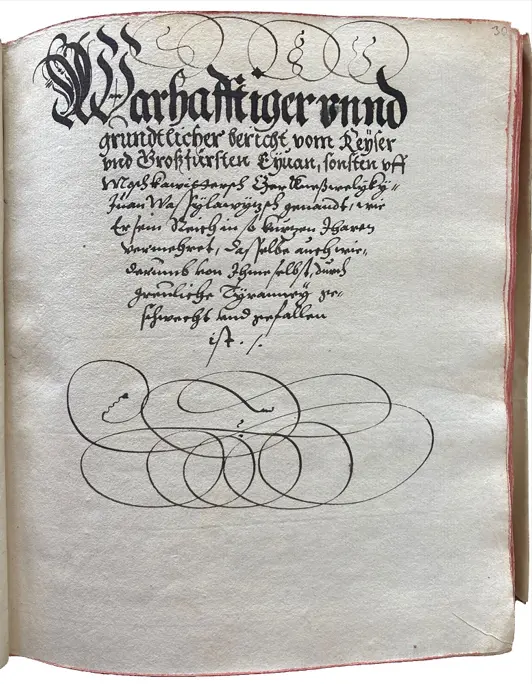 30
Warhafftiger vnnd
grundtlicher bericht, vom Keyser
vnd Großfürsten Eyuan, sonsten vff
Moschkawittersch Czer Kneßwelyky-
Juan Wassylawyzsch genandt, wie
Er sein Reich in so kurzen Jharen
vermehret, dasselbe auch wie-
derumb von Jhme selbst, durch
greuliche Tyranney ge-
schwecht vnd gefallen
ist.